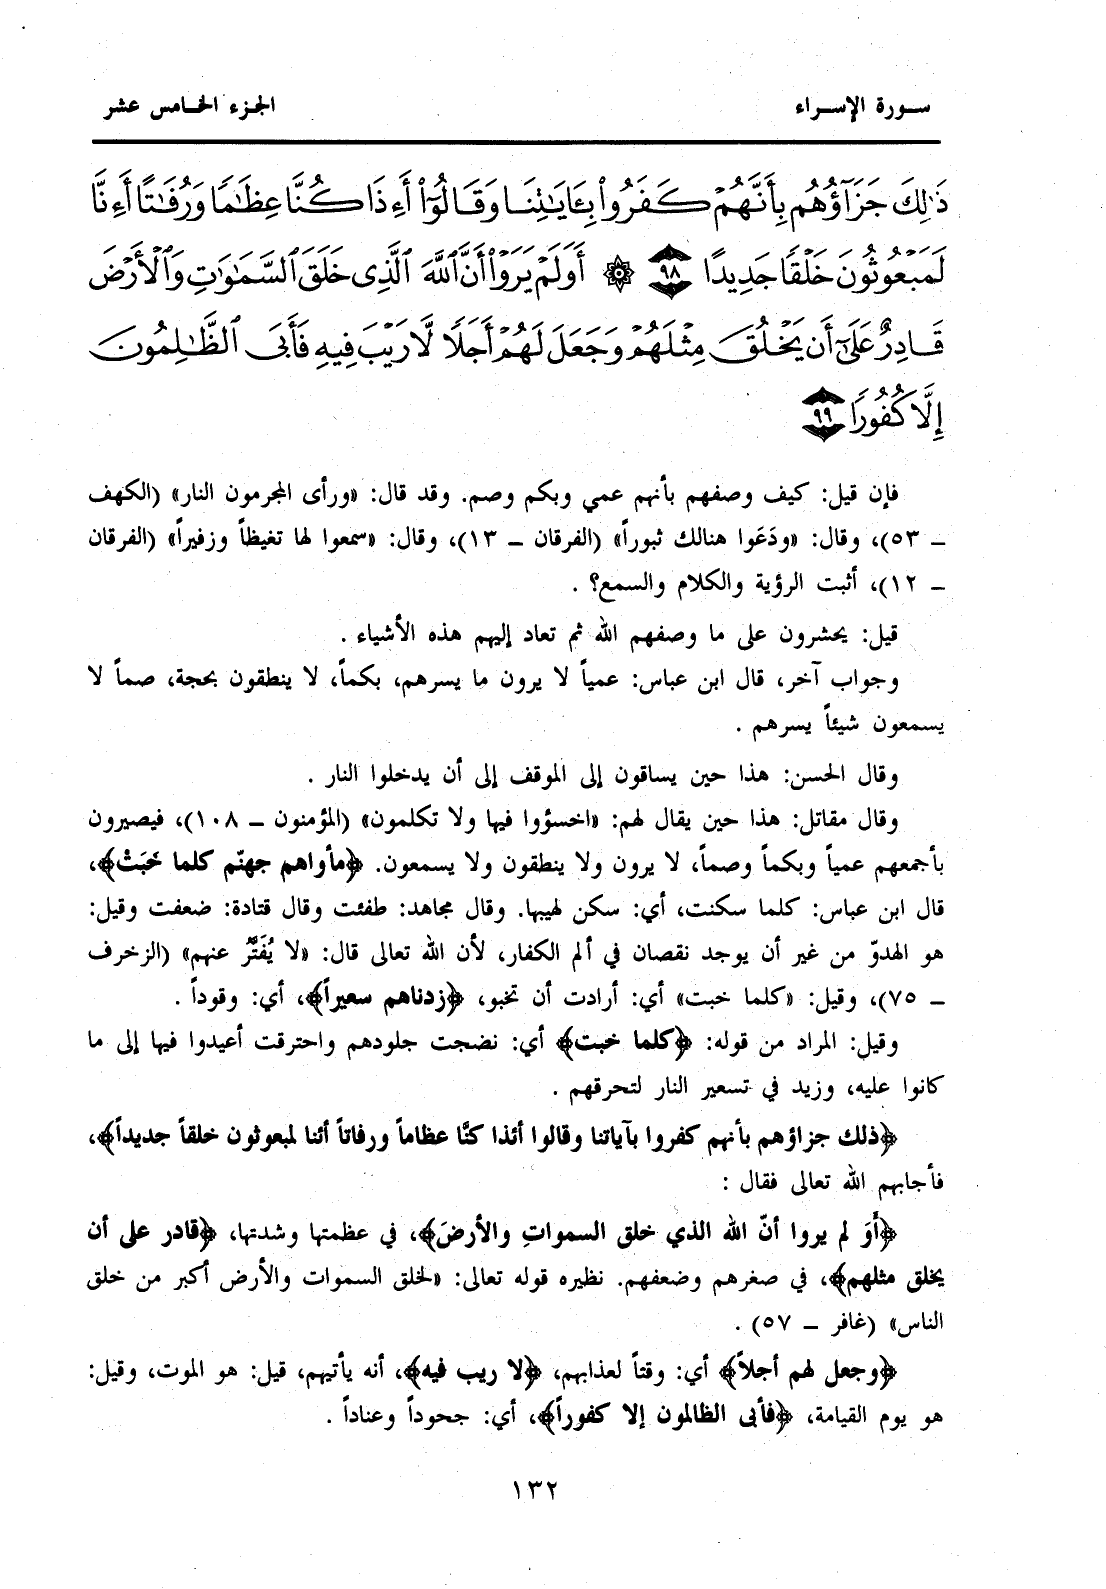 سورة الإسراء
الجزء الخامس عشر
ذَٰلِكَ جَزَآؤُهُم بِأَنَّهُمْ كَفَرُوا۟ بِـَٔايَـٰتِنَا وَقَالُوٓا۟ أَءِذَا كُنَّا عِظَـٰمًا وَرُفَـٰتًا أَءِنَّا
لَمَبْعُوثُونَ خَلْقًا جَدِيدًا ٩٨ ۞ أَوَلَمْ يَرَوْا۟ أَنَّ ٱللَّهَ ٱلَّذِى خَلَقَ ٱلسَّمَـٰوَٰتِ وَٱلْأَرْضَ
قَادِرٌ عَلَىٰٓ أَن يَخْلُقَ مِثْلَهُمْ وَجَعَلَ لَهُمْ أَجَلًا لَّا رَيْبَ فِيهِ فَأَبَى ٱلظَّـٰلِمُونَ
إِلَّا كُفُورًا ٩٩
فإن قيل: كيف وصفهم بأنهم عمي وبكم وصم. وقد قال: «ورأى المجرمون النار» (الكهف
ـ ٥٣)، وقال: «ودَعَوا هنالك ثبوراً» (الفرقان ـ ١٣)، وقال: «سمعوا لها تغيظاً وزفيراً» (الفرقان
ـ ١٢)، أثبت الرؤية والكلام والسمع؟ .
قيل: يحشرون على ما وصفهم الله ثم تعاد إليهم هذه الأشياء .
وجواب آخر، قال ابن عباس: عمياً لا يرون ما يسرهم، بكماً، لا ينطقون بحجة، صماً لا
يسمعون شيئاً يسرهم .
وقال الحسن: هذا حين يساقون إلى الموقف إلى أن يدخلوا النار .
وقال مقاتل: هذا حين يقال لهم: «اخسؤوا فيها ولا تكلمون» (المؤمنون ـ ١٠٨)، فيصيرون
بأجمعهم عمياً وبكماً وصماً، لا يرون ولا ينطقون ولا يسمعون. ﴿مأواهم جهنّم كلما خَبَتْ﴾،
قال ابن عباس: كلما سكنت، أي: سكن لهيبها. وقال مجاهد: طفئت وقال قتادة: ضعفت وقيل:
هو الهدوّ من غير أن يوجد نقصان في ألم الكفار، لأن الله تعالى قال: «لا يُفَتَّرُ عنهم» (الزخرف
ـ ٧٥)، وقيل: «كلما خبت» أي: أرادت أن تخبو، ﴿زدناهم سعيراً﴾، أي: وقوداً .
وقيل: المراد من قوله: ﴿كلما خبت﴾ أي: نضجت جلودهم واحترقت أعيدوا فيها إلى ما
كانوا عليه، وزيد في تسعير النار لتحرقهم .
﴿ذلك جزاؤهم بأنهم كفروا بآياتنا وقالوا أئذا كنَّا عظاماً ورفاتاً أئنا لمبعوثون خلقاً جديداً﴾،
فأجابهم الله تعالى فقال :
﴿أَوَ لم يروا أنّ الله الذي خلق السمواتِ والأرضَ﴾، في عظمتها وشدتها، ﴿قادر على أن
يخلق مثلهم﴾، في صغرهم وضعفهم. نظيره قوله تعالى: «لخلق السموات والأرض أكبر من خلق
الناس» (غافر ـ ٥٧) .
﴿وجعل لهم أجلاً﴾ أي: وقتاً لعذابهم، ﴿لا ريب فيه﴾، أنه يأتيهم، قيل: هو الموت، وقيل:
هو يوم القيامة، ﴿فأبى الظالمون إلا كفوراً﴾، أي: جحوداً وعناداً .
١٣٢